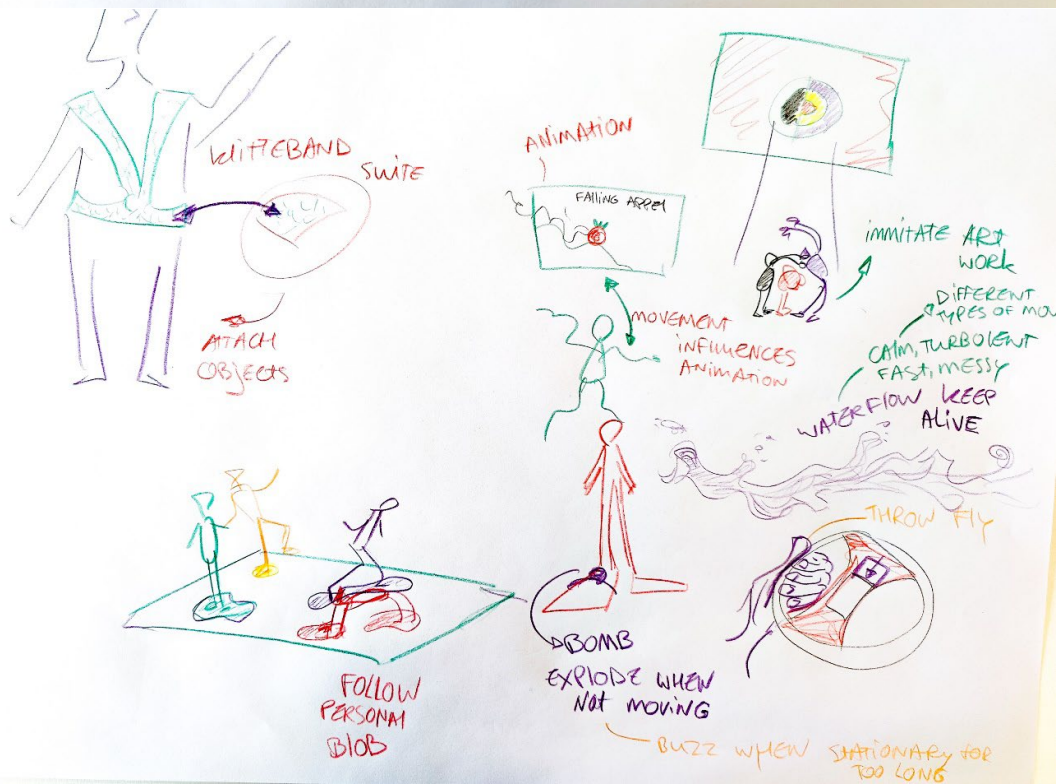 KLITTEBAND
SUITE
ATTACH
OBJECTS
ANIMATION
FALLING APPEL
MOVEMENT
INFLUENCES
ANIMATION
IMMITATE ART
WORK
DIFFERENT
TYPES OF MOV
CALM, TURBOLENT
FAST, MESSY
WATERFLOW KEEP
ALIVE
THROW FLY
FOLLOW
PERSONAL
BLOB
BOMB
EXPLODE WHEN
NOT MOVING
BUZZ WHEN STATIONARY FOR
TOO LONG